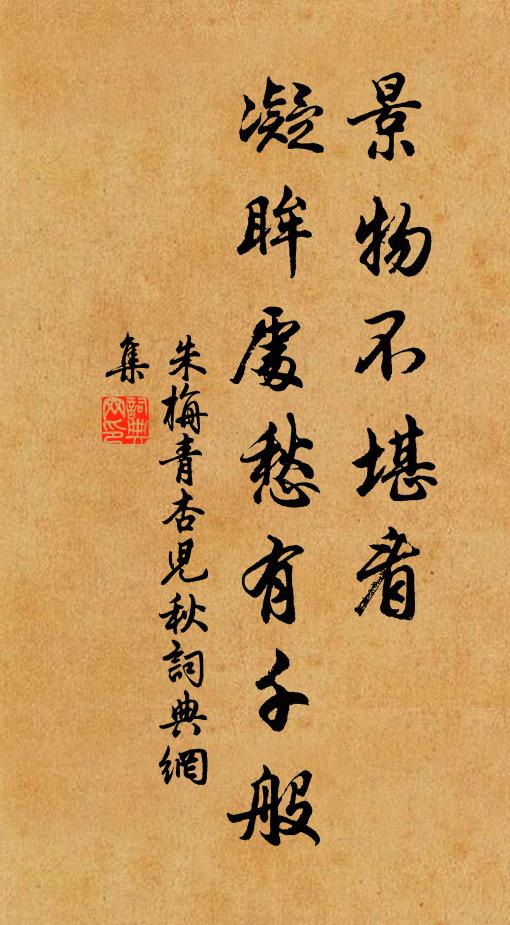 景物不堪看
凝眸處愁有千般
朱梅青杏兒秋詞典網
集
詞典
网印